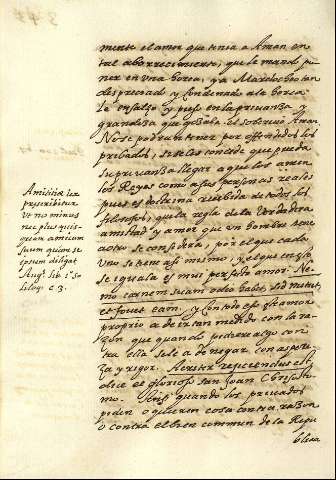 mente el amor que tenia a Aman en
tal aborrecimiento, que le mando po
ner en una horca, y a Mardocheo tan
despreciado y condenado a la horca
le ensalzo y puso en la privanza y
grandeza que gozaba el soberuio Aman
No se podran tener por offendidos los
pribados, si se les concede que pueda
su privanza llegar a que los amen
los Reyes como a sus personas reales
pues es doctrina recibida de todos los
filosofos, que la regla de la verdadera
amistad y amor que un hombre tiene
a otro se considera, por el que cada
uno se tiene assi mismo, y el que en esto
se iguala es mui perfecto amor. Ne
mo carnem suam odio habet, sed nutrit
et fouet eam, y con todo esso este amor
proprio a de ir tan medido con la ra
çon que quando pidiere algo con
tra ella se le a de negar con aspere
za y rigor. Acriter
dice el glorioso san Joan Chrisosto
mo. quando los priuados
piden o quieren cosa contra razon
o contra el bien commun de la Repu
blica
Amicitiæ lex
præscribitur
ut no minus
nec plus quis
quam amicum
suum quam se
ipsum diligat
Aug. lib. 1º So
liloq. c. 3.